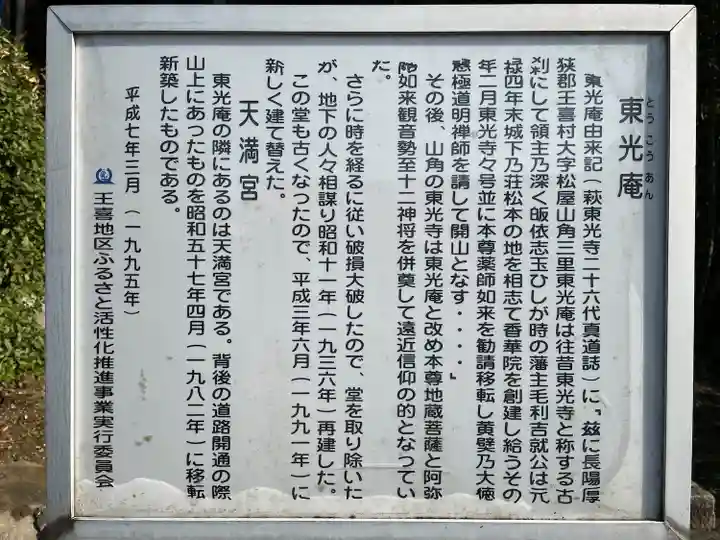 東光庵
とうこうあん
東光庵由来記(萩東光寺二十六代真道誌)に『玆に長陽厚
狭郡王喜村大字松屋山角三里東光庵は往昔東光寺と称する古
刹にして領主乃深く皈依志玉ひしが時の藩主毛利吉就公は元
禄四年末城下乃荘松本の地を相志て香華院を創建し給うその
年二月東光寺々号並に本尊薬師如来を勧請移転し黄檗乃大徳
慧極道明禅師を請して開山となす・・・・』
その後、山角の東光寺は東光庵と改め本尊地蔵菩薩と阿弥
陀如来観音勢至十二神将を併奠して遠近信仰の的となってい
た。
さらに時を経るに従い破損大破したので、堂を取り除いた
が、地下の人々相謀り昭和十一年(一九三六年)再建した。
この堂も古くなったので、平成三年六月(一九九一年)に
新しく建て替えた。
天満宮
東光庵の隣にあるのは天満宮である。背後の道路開通の際
山上にあったものを昭和五十七年四月(一九八二年)に移転
新築したものである。
平成七年三月(一九九五年)
王喜地区ふるさと活性化推進事業実行委員会